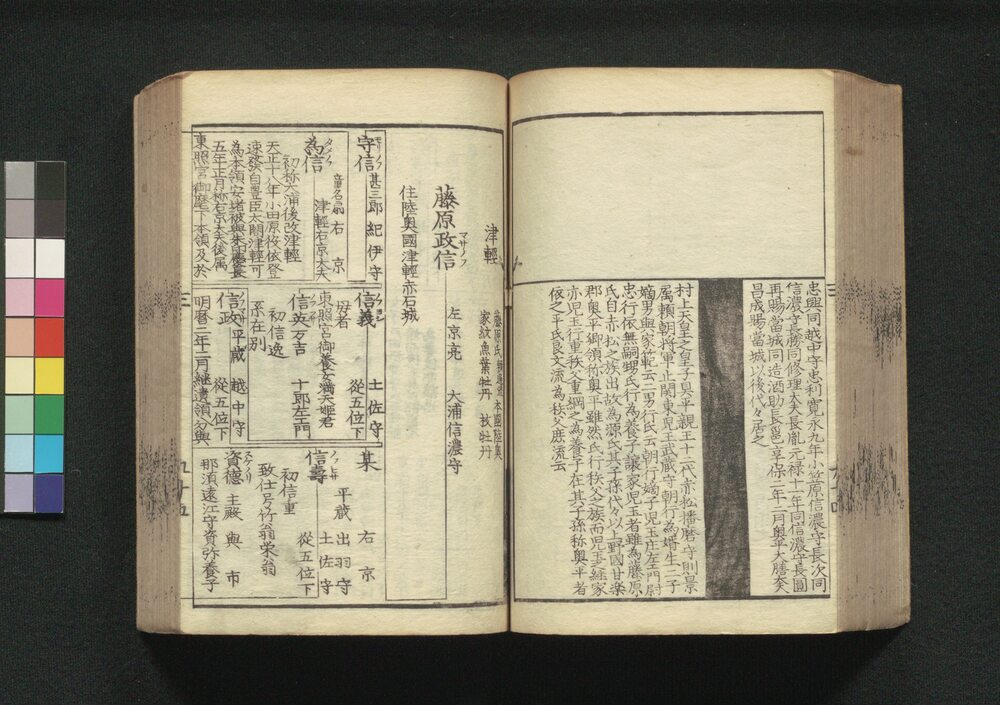 忠興同越中守忠利寛永九年小笠原信濃守長次同
信濃守長勝同修理太夫長胤元禄十一年同信濃守長圓
再賜當城同造酒助長邕享保二年二月奥平大膳太夫
昌成賜當城以後代々居之
村上天皇之皇子具平親王十二代赤松播磨守則景
属頼朝将軍止関東児玉武蔵守朝行為婿生二子
嫡男與家範云二男行氏云朝行嫡子児玉庄左エ門尉
忠行依無嗣甥氏行為養子譲家児玉者雖為藤原
氏自赤松之族出故為源氏其子孫代々以上野國甘楽
郡奥平郷領称奥平雖然氏行秩父族而児玉経家
亦児玉行重秩父重綱之為養子在其子孫称奥平者
依之平氏良文流為秩父庶流云
津輕
家紋魚葉牡丹 枝牡丹
藤原政信
マサノフ
左京亮 大浦信濃守
住陸奥國津輕赤石城
守信 甚三郎 紀伊守
モリノフ
為信 童名扇 右京
タメノフ
津輕右京大夫
初称大浦後改津輕
天正十八年小田原攻依登
速發自豊臣太閤津輕可
為本領安堵被與朱印慶長
五年正月称右京大夫後属
東照宮御麾下本領及於
信義 土佐守
ノフヨシ
従五位下
母者
東照宮御養女満天姫君
信英 万吉 十郎左エ門
初信逸
系在別
信政 平蔵 越中守
従五位下
明暦二年二月継遺領分與
某 右京
信壽 平蔵 出羽守
土佐守
初信重 従五位下
致仕号竹翁栄翁
資徳 主殿 與市
スケノリ
那須遠江守資弥養子
三
九十五